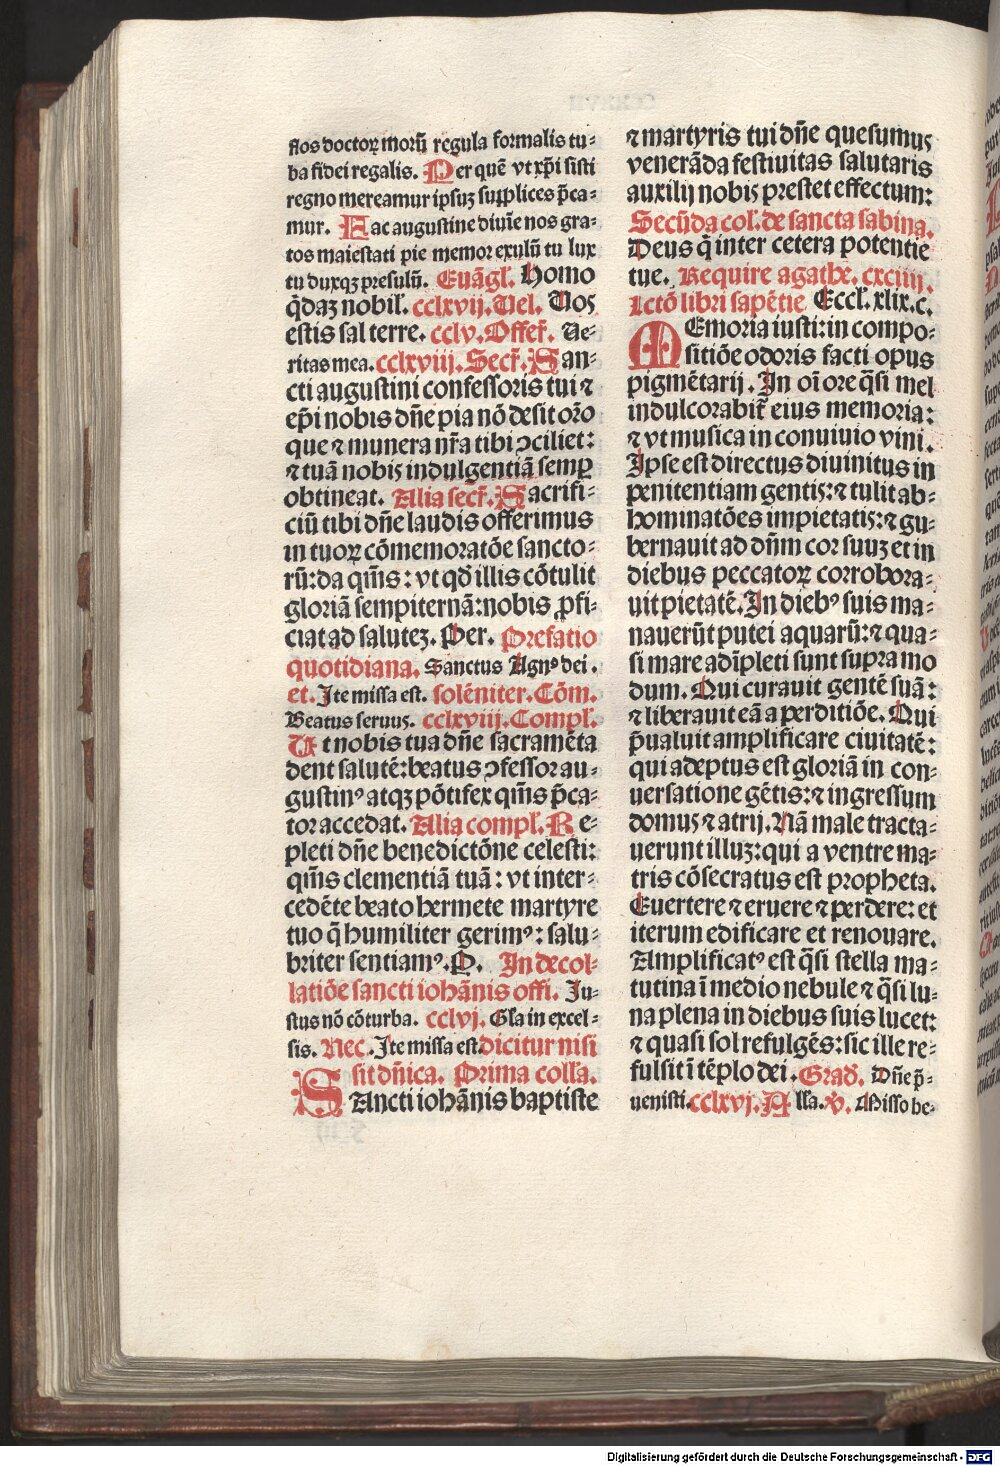 flos doctoꝝ morū regula formalis tu-
ba fidei regalis. Per quē vt xp̄i sisti
regno mereamur ipsuꝫ supplices p̄ca-
mur. Hac augustine diuīe nos gra-
tos maiestati pie memor exulū tu lux
tu duxqꝫ presulū. Euāgl̄. Homo
q̄daꝫ nobil̄. cclxvij. Uel. Uos
estis sal terre. cclv. Offer̄. Ue-
ritas mea. cclxviij. Secr̄. San-
cti augustini confessoris tui ⁊
ep̄i nobis dn̄e pia nō desit or̄o
que ⁊ munera nr̄a tibi ↄciliet:
⁊ tuā nobis indulgentiā semꝑ
obtineat. Alia secr̄. Sacrifi-
ciū tibi dn̄e laudis offerimus
in tuoꝝ cōmemoratōe sancto-
rū: da qm̄s: vt qd̄ illis cōtulit
gloriā sempiternā: nobis ꝓfi-
ciat ad saluteꝫ. Per. Prefatio
quotidiana. Sanctus Agnꝰ dei.
et. Ite missa est. solēniter. Cōm.
Beatus seruus. cclxviij. Compl̄.
Ut nobis tua dn̄e sacramēta
dent salutē: beatus ↄfessor au-
gustinꝰ atqꝫ pōtifex qm̄s p̄ca-
tor accedat. Alia compl̄. Re-
pleti dn̄e benedictōne celesti:
qm̄s clementiā tuā: vt inter-
cedēte beato hermete martyre
tuo q̄ humiliter gerimꝰ: salu-
briter sentiamꝰ. P. In decol-
latiōe sancti iohānis offi. Ju-
stus nō cōturba. cclvj. Gl̄a in excel-
sis. Nec. Ite missa est. dicitur nisi
sit dn̄ica. Prima coll̄a.
SAncti iohānis baptiste
⁊ martyris tui dn̄e quesumus
venerāda festiuitas salutaris
auxilij nobis prestet effectum:
Secūda col̄. de sancta sabina.
Deus q̄ inter cetera potentie
tue. Require agathe. cxciiij.
Lctō libri sapētie Eccl̄. xlix. c.
MEmoria iusti: in compo-
sitiōe odoris facti opus
pigmētarij. In oī ore q̄si mel
indulcorabit̄ eius memoria:
⁊ vt musica in conuiuio vini.
Ipse est directus diuinitus in
penitentiam gentis: ⁊ tulit ab-
hominatōes impietatis: ⁊ gu-
bernauit ad dn̄m cor suuꝫ et in
diebus peccatoꝝ corrobora-
uit pietatē. In diebꝰ suis ma-
nauerūt putei aquarū: ⁊ qua-
si mare adīpleti sunt supra mo
dum. Qui curauit gentē suā:
⁊ liberauit eā a perditiōe. Qui
p̄ualuit amplificare ciuitatē:
qui adeptus est gloriā in con-
uersatione gētis: ⁊ ingressum
domus ⁊ atrij. Nā male tracta-
uerunt illuꝫ: qui a ventre ma-
tris cōsecratus est propheta.
Euertere ⁊ eruere ⁊ perdere: et
iterum edificare et renouare.
Amplificatꝰ est q̄si stella ma-
tutina ī medio nebule ⁊ q̄si lu-
na plena in diebus suis lucet:
⁊ quasi sol refulgēs: sic ille re-
fulsit ī tēplo dei. Grad̄. Dn̄e p̄-
uenisti. cclxvj. All̄a. v̄. Misso he-
Digitalisierung gefördert durch die Deutsche Forschungsgemeinschaft - DFG